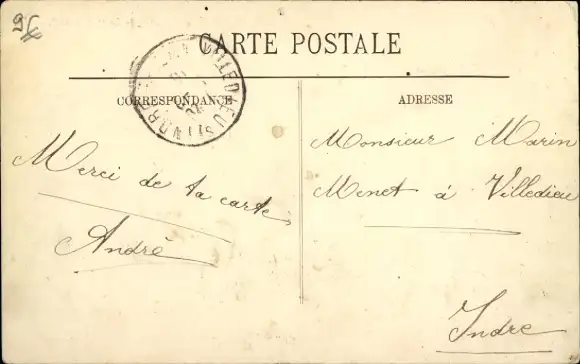 CARTE POSTALE
CORRESPONDANCE
ADRESSE
Merci de ta carte
André
Monsieur Marin
Menet à Villedieu
Indre
VILLEDIEU S INDRE